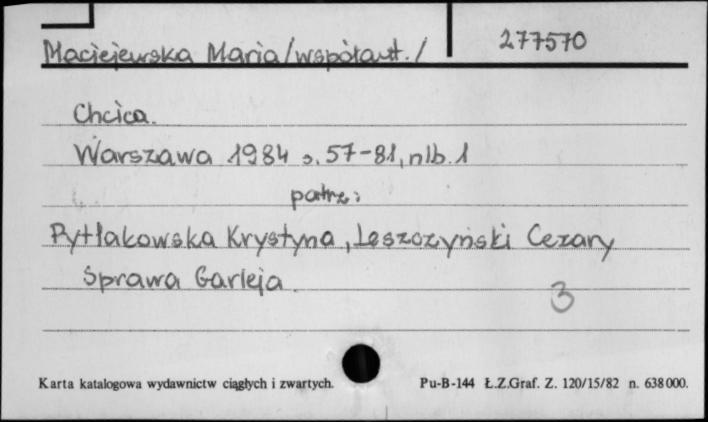 277570
Maciejewska Maria/współaut./
Chcica.
Warszawa 1984 s. 57-81, nlb. 1
patrz:
Pytlakowska Krystyna, Leszczyński Cezary
Sprawa Garleja.
3
Karta katalogowa wydawnictw ciągłych i zwartych.
Pu-B-144 Ł.Z.Graf. Z. 120/15/82 n. 638000.